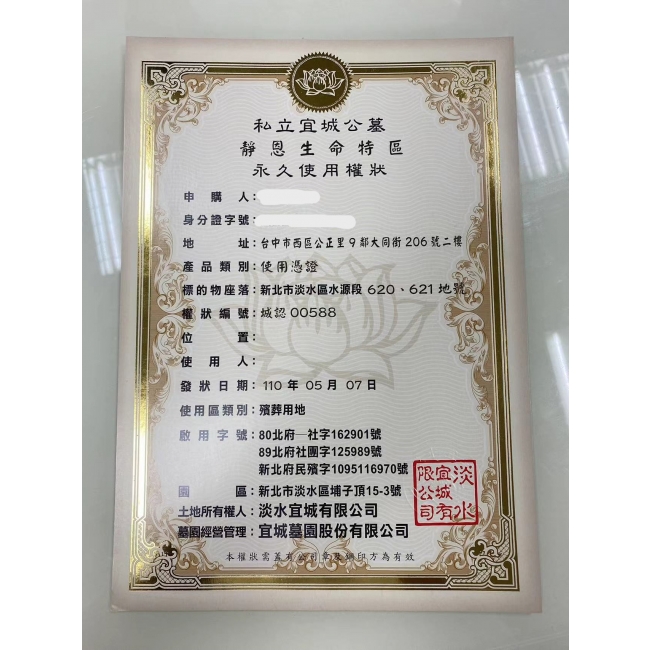 私立宜城公墓
靜恩生命特區
永久使用權狀
申購人：
身分證字號：
地址：台中市西區公正里9鄰大同街206號二樓
產品類別：使用憑證
標的物座落：新北市淡水區水源段620、621地號
權狀編號：城認00588
位置：
使用人：
發狀日期：110年05月07日
使用區類別：殯葬用地
啟用字號：80北府一社字162901號
89北府社團字125989號
新北府民殯字1095116970號
園區：新北市淡水區埔子頂15-3號
土地所有權人：淡水宜城有限公司
墓園經營管理：宜城墓園股份有限公司
淡水宜城有限公司
本權狀需蓋有公司章及鋼印方為有效